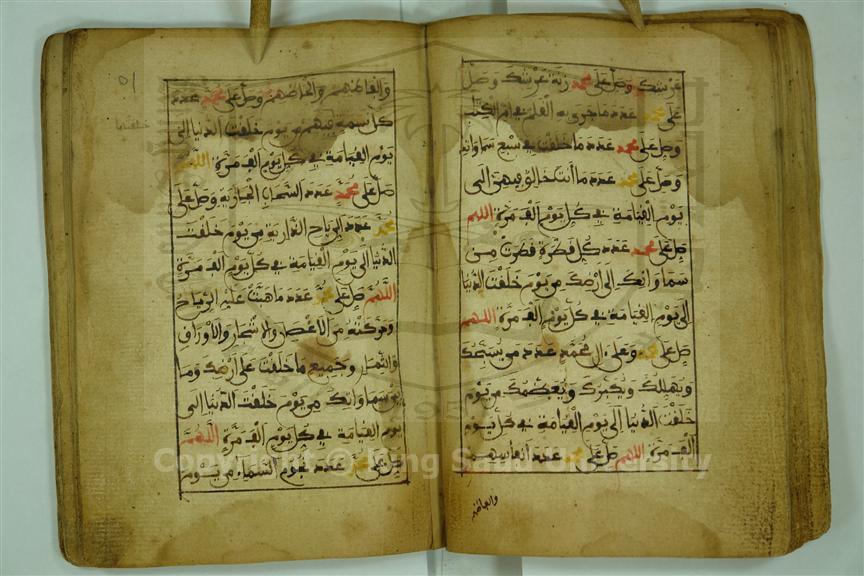 عرشك وصل على محمد زنة عرشك وصل
على محمد عدد ما جرى به القلم في ام الكتاب
وصل على محمد عدد ما خلقت في سبع سماواتك
وصل على محمد عدد ما أنت خالق فيهن إلى
يوم القيامة في كل يوم ألف مرة اللهم
صل على محمد عدد كل قطرة قطرت من
سماواتك إلى أرضك من يوم خلقت الدنيا
إلى يوم القيامة في كل يوم ألف مرة اللهم
صل على محمد وعلى ءال محمد عدد من يسبحك
ويهللك ويكبرك ويعظمك من يوم
خلقت الدنيا إلى يوم القيامة في كل يوم
ألف مرة اللهم صل على محمد عدد أنفاسهم
والفاظهم
وألفاظهم وألحاظهم وصل على محمد عدد
كل نسمة فيهم من يوم خلقت الدنيا إلى
يوم القيامة في كل يوم ألف مرة اللهم
صل على محمد عدد السحاب الجارية وصل على
محمد عدد الرياح الذارية من يوم خلقت
الدنيا إلى يوم القيامة في كل يوم ألف مرة
اللهم صل على محمد عدد ما هبت عليه الرياح
وحركته من الأغصان والأشجار والأوراق
والثمار وجميع ما خلقت على أرضك وما
بين سماواتك من يوم خلقت الدنيا إلى
يوم القيامة في كل يوم ألف مرة اللهم
صل على محمد عدد نجوم السماء من يوم
Copyright © King Saud University